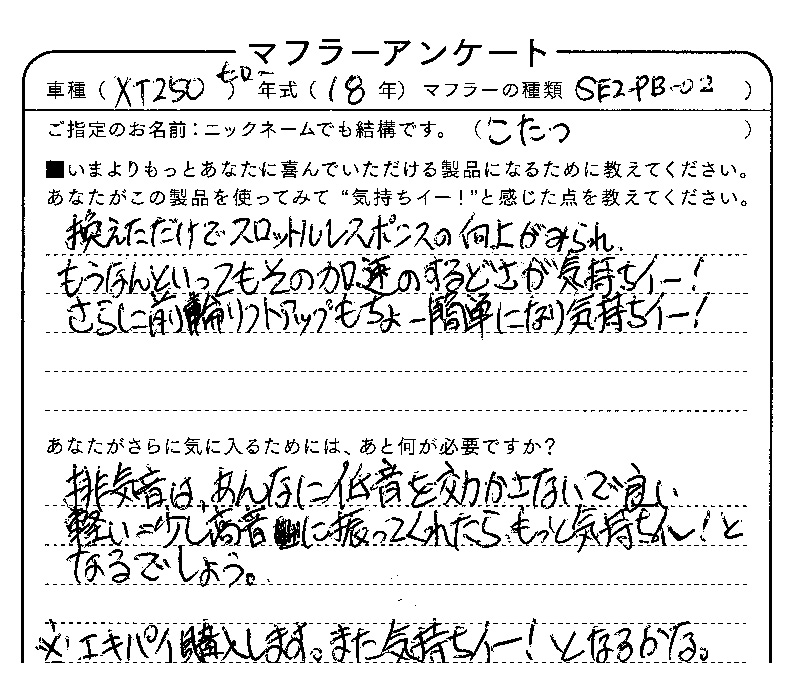 マフラーアンケート
車種（XT250 セロー）年式（18年）マフラーの種類 SE2-PB-02）
ご指定のお名前：ニックネームでも結構です。（こたつ）
■いまよりもっとあなたに喜んでいただける製品になるために教えてください。
あなたがこの製品を使ってみて“気持ちイー！”と感じた点を教えてください。
換えただけでスロットルレスポンスの向上がみられ、
もうなんといってもその加速のするどさが気持ちイー！
さらに前輪リフトアップもちょー簡単になり気持ちイー！
あなたがさらに気に入るためには、あと何が必要ですか？
排気音は、あんなに低音を効かさないで良い
軽い=少し高音に振ってくれたら、もっと気持ちイー！と
なるでしょう。
※エキパイ購入します。また気持ちイー！となるかな。